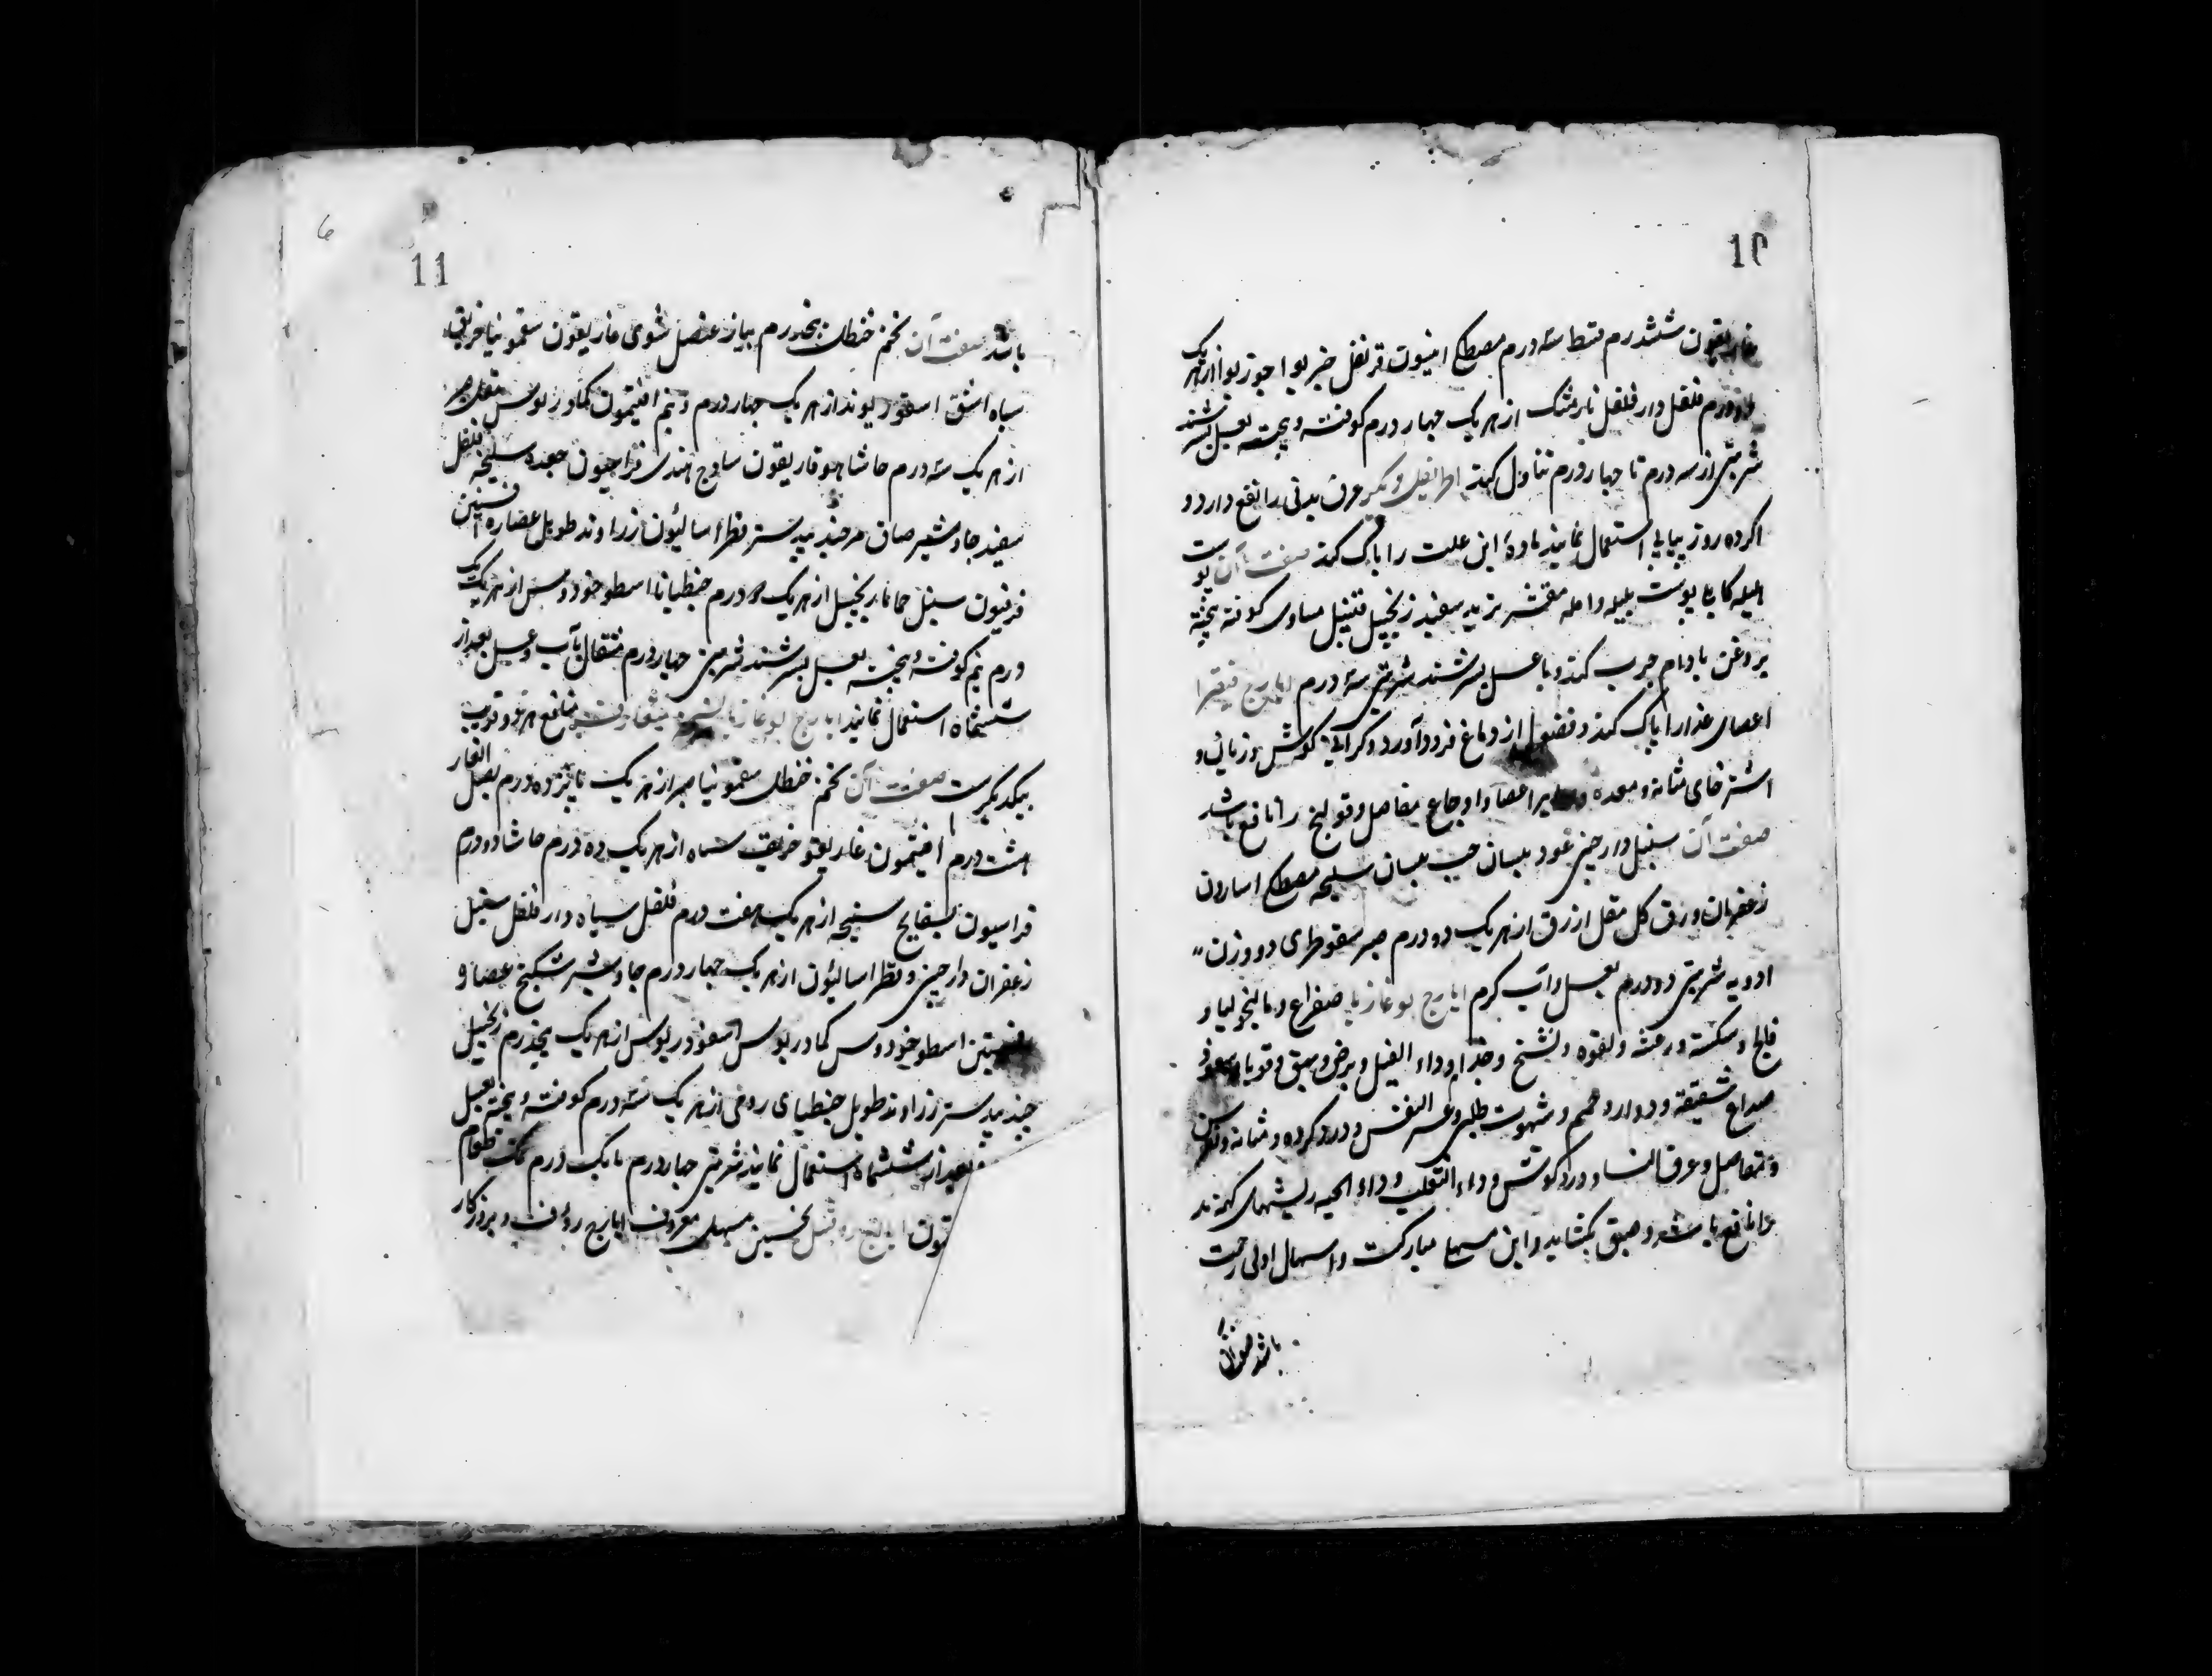 10
غاریقون ششدرم قسط سه درم مصطکی انیسون قرنفل خیربوا جوزبوا از هر یک
دو درم فلفل دار فلفل نارمشک از هر یک چهار درم کوفته و بیخته بعسل بسرشند
شربتی از سه درم تا چهار درم تناول کنند اطریفل دیگر عرق مدنی را نفع دارد و
اکر ده روز پیاپی استعمال نمایند ماده این علت را پاک کند صفت آن پوست
هلیله کابلی پوست بلیله و امله مقشر تربد سفید زنجبیل قنبیل مساوی کوفته بیخته
بروغن بادام چرب کنند و باعسل بسرشند شربتی سه درم ایارج فیقرا
اعصای غذارا پاک کند و فضول از دماغ فرود آورد و کرانی کوش و زبان و
استرخای مثانه و معده و سایر اعضا و اوجاع مفاصل و قولنج را نافع باشد
صفت آن سنبل دارچینی عود بلسان حب بلسان سلیخه مصطکی اسارون
زعفران ورق کل مقل ازرق از هر یک دو درم صبر سقوطری دو وزن
ادویه شربتی دو درم بعسل و آب کرم ایارج لوغازیا صداع و مالیخولیا و
فالج و سکته و رعشه و لقوه و تشنج و جذام و داء الفیل و برص و بهق و قوبا و
صداع شقیقه و دوار و صمم و شهوت طلبی و عسر النفس و درد کرده و مثانه و
و مفاصل و عرق النسا و درد کوش و داء الثعلب و داء الحیه ریشهای کهنه
را نافع باشد و حیض بکشاید و این مسهل مبارکست و اسهال اولی راحت
باشد صفت آن
11
6
باشد صفت آن تخم حنظل پنجدرم پیاز عنصل مشوی غاریقون سقمونیا خربق
سیاه اشق اسقوردیون از هر یک چهار درم و نیم افتیمون کمادریوس مقل صبر
از هر یک سه درم حاشا هوفاریقون ساذج هندی فراسیون جعده سلیخه فلفل
سفید جاوشیر صاف مر جندبیدستر فطراسالیون زراوند طویل عصاره افسنتین
فرفیون سنبل حماما زنجبیل از هر یک دو درم جنطیانا اسطوخودوس از هر یک یک
درم نیم کوفته و بیخته بعسل بسرشند شربتی چهار درم مثقال بآب و عسل بعد از
ششماه استعمال نمایند ایارج لوغازیا منافع هر دو قریب
بیکدیکرست صفت آن تخم حنظل سقمونیا صبر از هر یک پانزده درم بصل الفار
هشت درم افتیمون غاریقون خربق سیاه از هر یک ده درم حاشا دو درم
فراسیون بسفایج سلیخه از هر یک هفت درم فلفل سیاه دار فلفل سنبل
زعفران دارچینی و فطراسالیون از هر یک چهار درم جاوشیر سکبینج عصاره
افسنتین اسطوخودوس کمادریوس اسقوردیوس از هر یک پنجدرم زنجبیل
جندبیدستر زراوند طویل جنطیای رومی از هر یک سه درم کوفته و بیخته بعسل
بعد از ششماه استعمال نمایند شربتی چهار درم با یک درم نمک طعام
نخستین مسهل معروف ایارج روفس و بروزکار